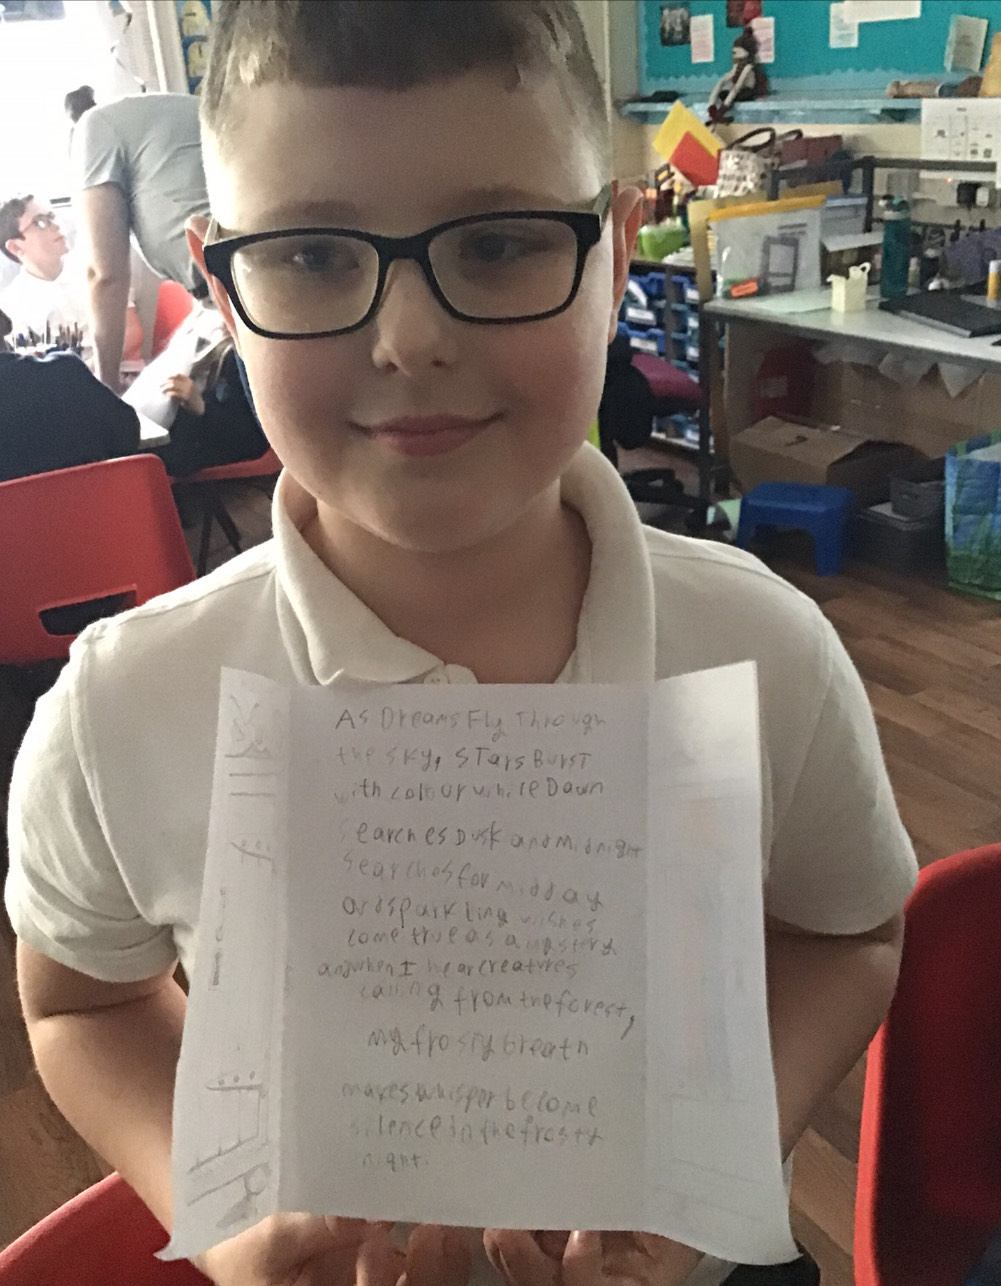 As Dreams Fly Through
the sky, STars BursT
with colour while Dawn
Searches Dusk and Midnight
Searches for midday
and sparkling wishes
come true as a mystery
and when I hear creatures
calling from the forest,
my frosty breath
makes whisper become
silence in the frosty
night.